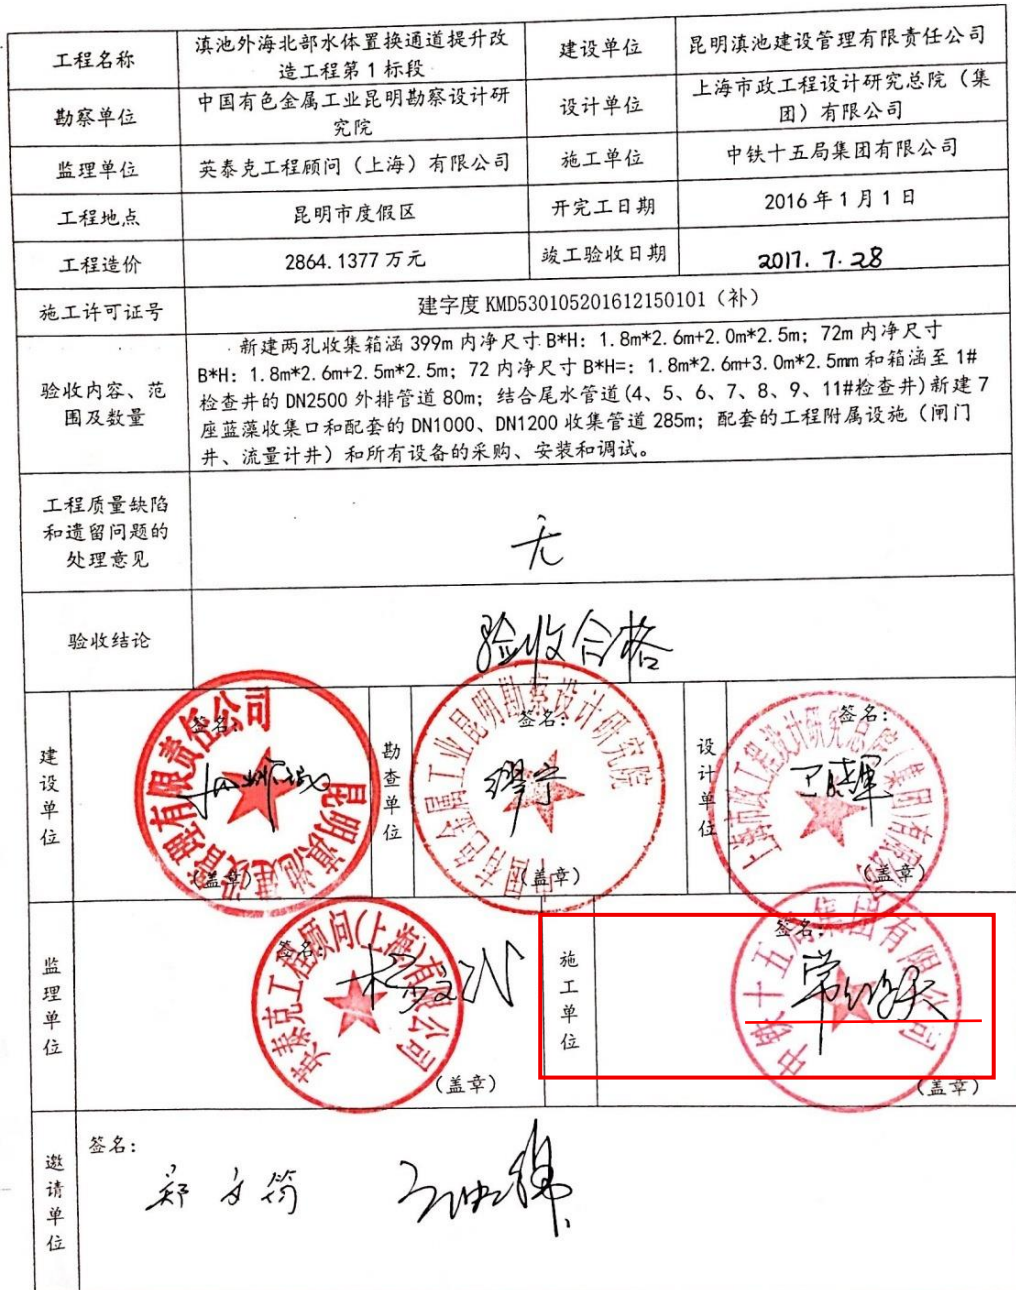 工程名称
滇池外海北部水体置换通道提升改
造工程第1标段
建设单位
昆明滇池建设管理有限责任公司
勘察单位
中国有色金属工业昆明勘察设计研
究院
设计单位
上海市政工程设计研究总院（集
团）有限公司
监理单位
英泰克工程顾问（上海）有限公司
施工单位
中铁十五局集团有限公司
工程地点
昆明市度假区
开完工日期
2016年1月1日
工程造价
2864.1377万元
竣工验收日期
2017.7.28
施工许可证号
建字度 KMD530105201612150101（补）
验收内容、范
围及数量
新建两孔收集箱涵 399m 内净尺寸 B*H: 1.8m*2.6m+2.0m*2.5m; 72m 内净尺寸
B*H: 1.8m*2.6m+2.5m*2.5m; 72 内净尺寸 B*H=: 1.8m*2.6m+3.0m*2.5mm 和箱涵至 1#
检查井的 DN2500 外排管道 80m; 结合尾水管道(4、5、6、7、8、9、11#检查井)新建 7
座蓝藻收集口和配套的 DN1000、DN1200 收集管道 285m; 配套的工程附属设施（闸门
井、流量计井）和所有设备的采购、安装和调试。
工程质量缺陷
和遗留问题的
处理意见
无
验收结论
验收合格
建设单位
签名:
昆明滇池建设管理有限责任公司
（盖章）
勘查单位
签名:
缪宁
中国有色金属工业昆明勘察设计研究院
（盖章）
设计单位
签名:
上海市政工程设计研究总院(集团)有限公司
（盖章）
监理单位
签名:
英泰克工程顾问(上海)有限公司
（盖章）
施工单位
签名:
中铁十五局集团有限公司
（盖章）
邀请单位
签名: